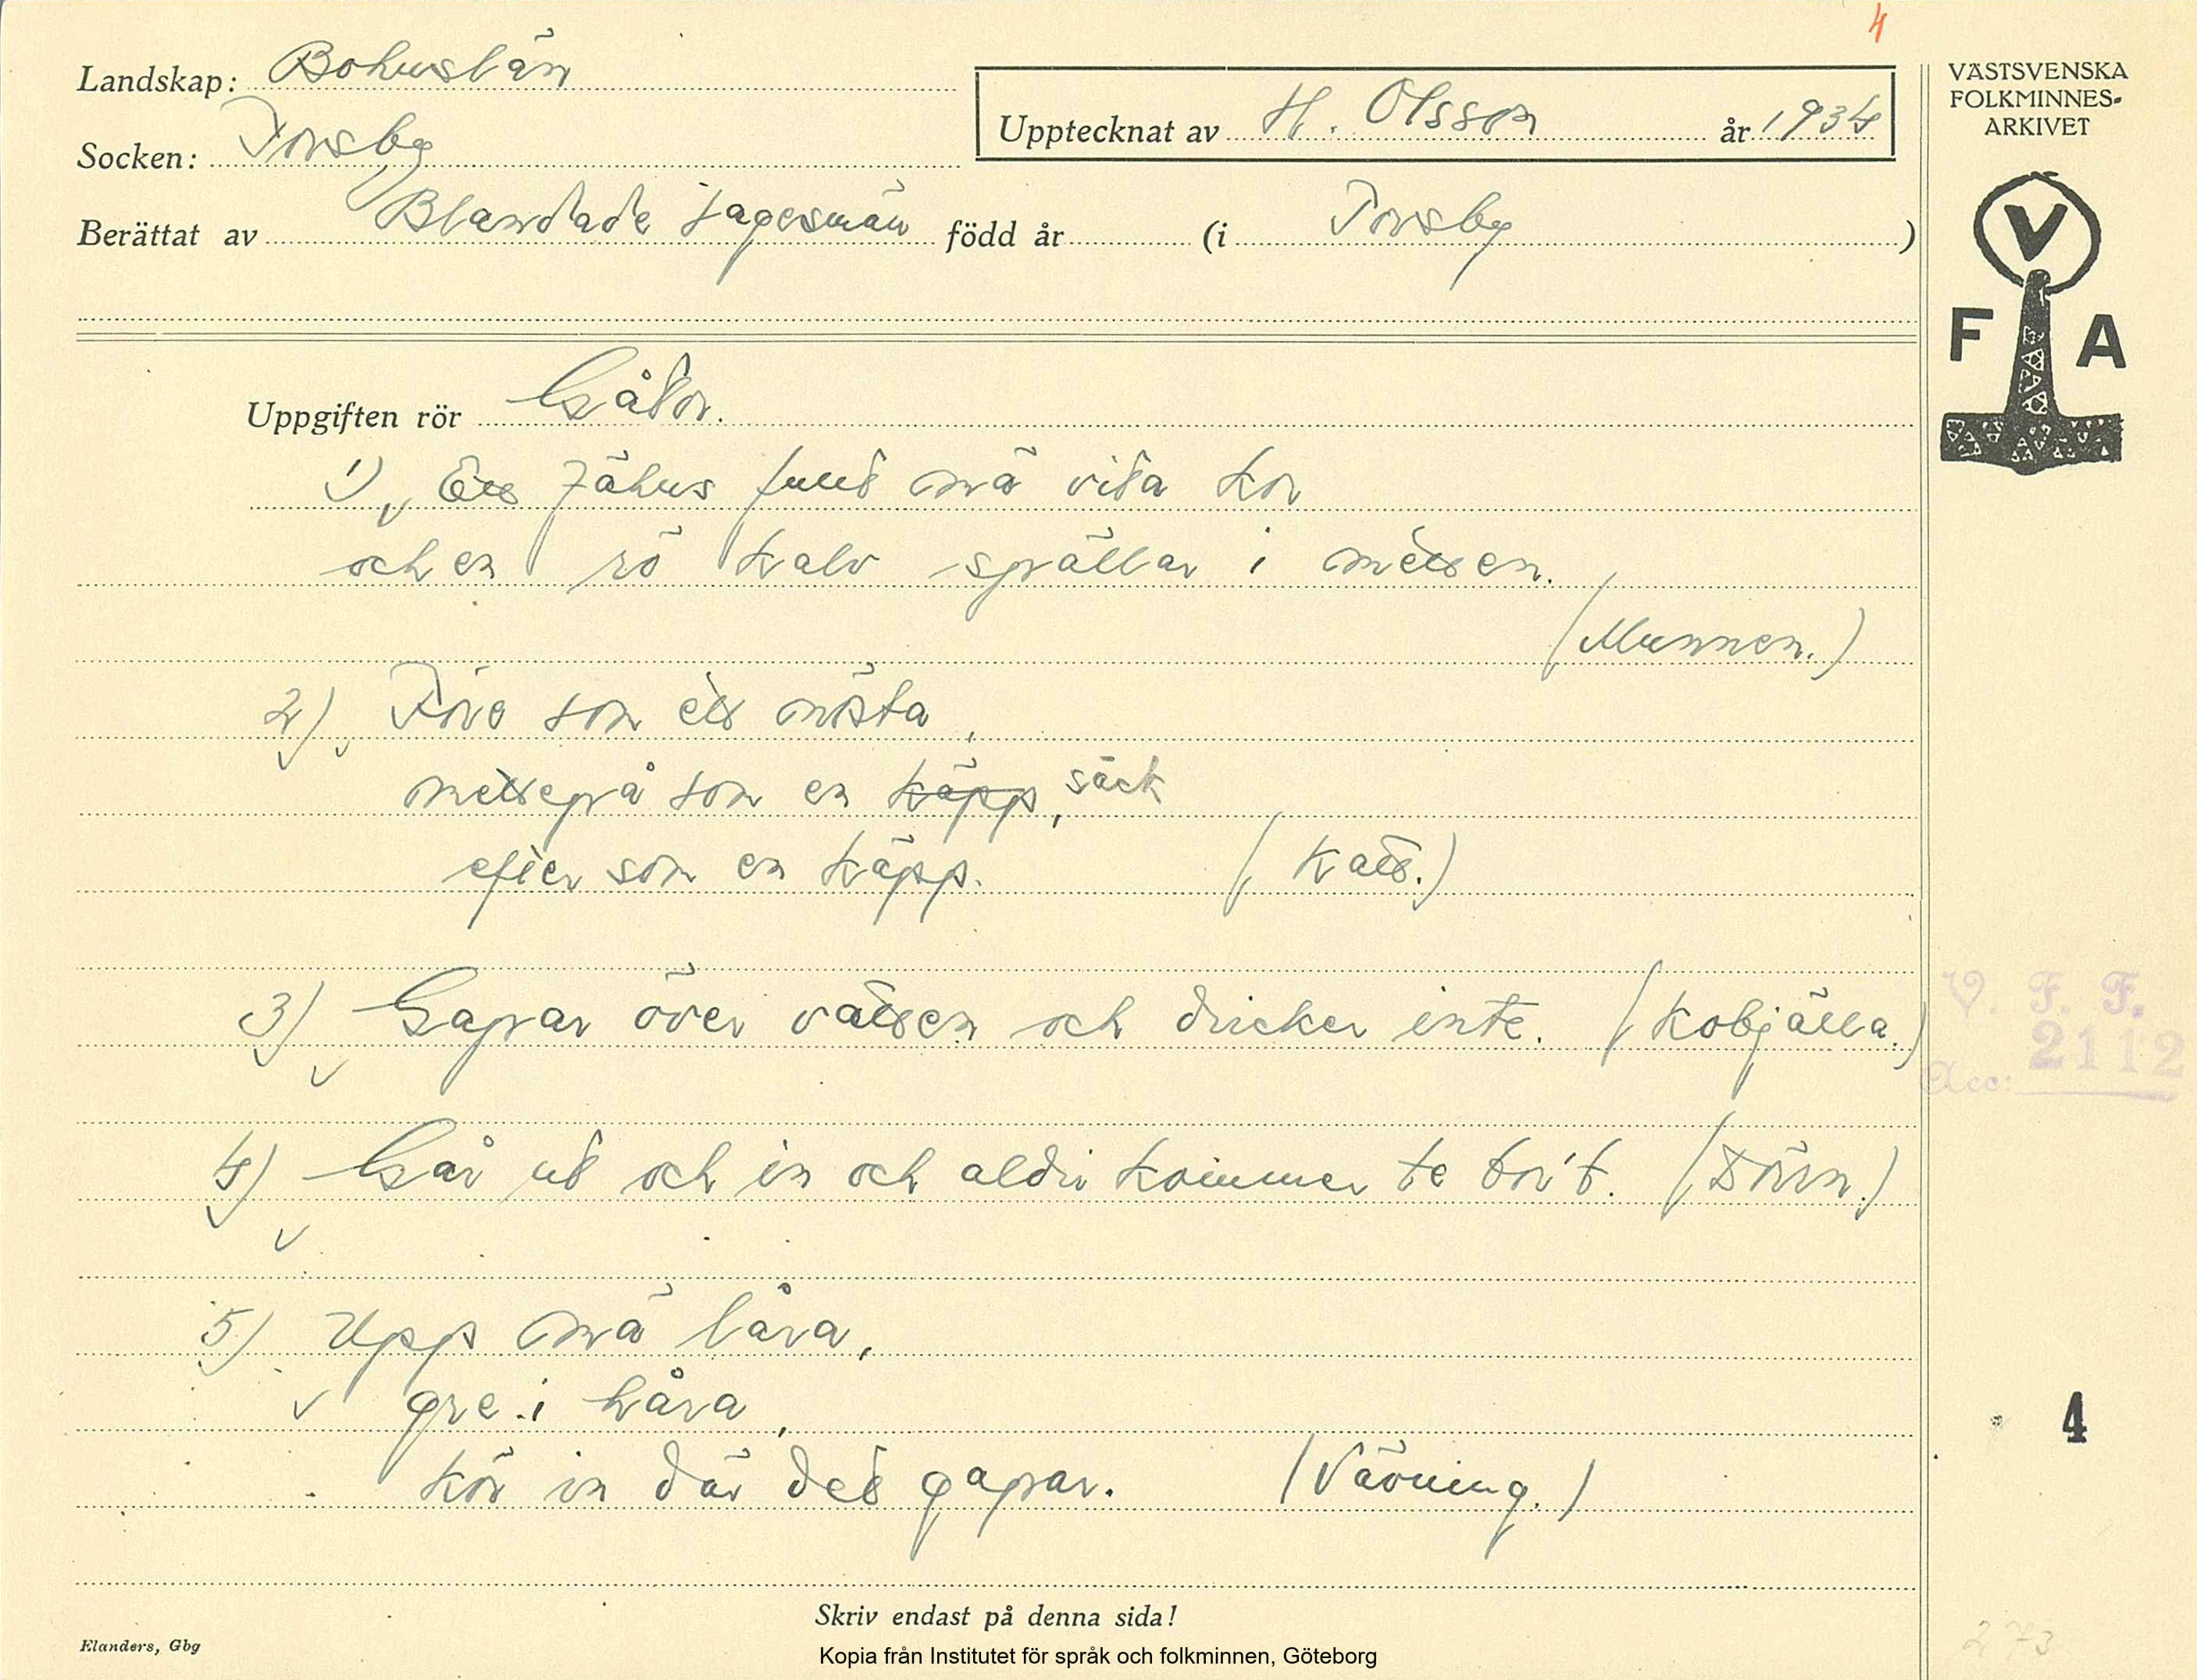 4
Landskap: Bohuslän
Socken: Torsby
Upptecknat av H. Olsson år 1934
VÄSTSVENSKA
FOLKMINNES-
ARKIVET
Berättat av Blandade sagesmän född år (i Torsby)
V
F A
Uppgiften rör Gåtor.
1) Ett fähus fullt mä vita kor
och en rö kalv sprällar i mitten.
(Munnen.)
2) Före som ett nösta,
mittepå som en käpp, säck
efter som en käpp. (Katt.)
3) Gapar över vatten och dricker inte. (Kobjälla.)
V. F. F.
Acc: 2112
4) Går ut och in och aldri kommer te bor't. (Dörrn.)
5) Upp mä låra,
gre i håra,
4
kör in där det gapar. (Vävning.)
Skriv endast på denna sida!
Elanders, Gbg
273
Kopia från Institutet för språk och folkminnen, Göteborg